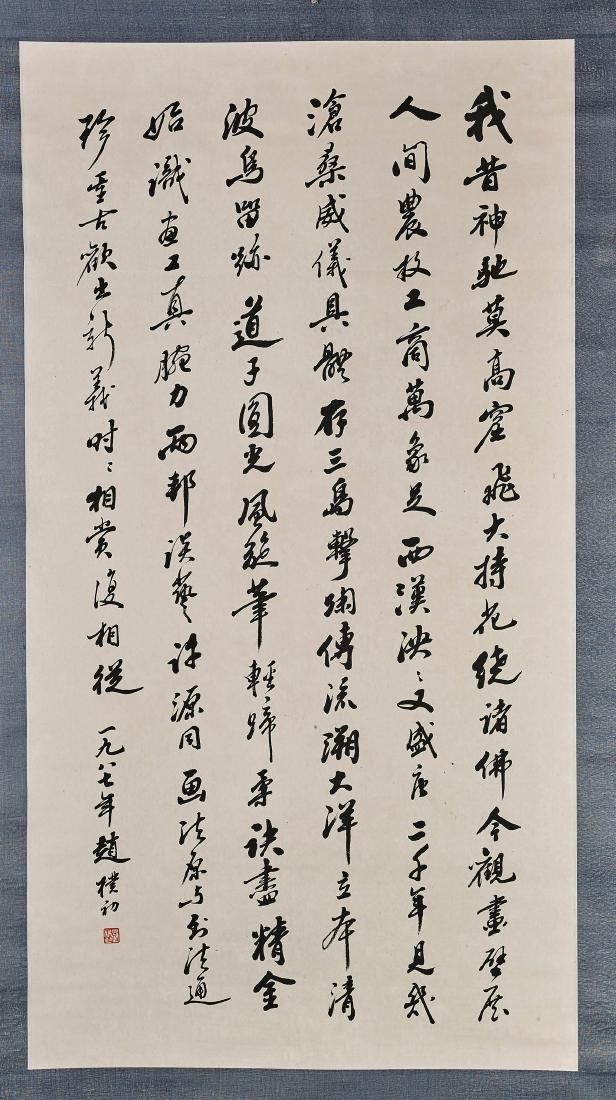 我昔神馳莫高窟飛天持花繞諸佛今觀畫壁展
人間農牧工商萬象足西漢泱泱文盛唐二千年見幾
滄桑威儀具體存三島擊蹴傳流溯大洋立本清
波馬留跡道子圓光風旋筆輕蹄柔訣盡精金
始識畫工真腕力兩邦談藝許源同画法原與刻法通
珍重古歡出新義時時相賞復相從
一九八七年趙樸初